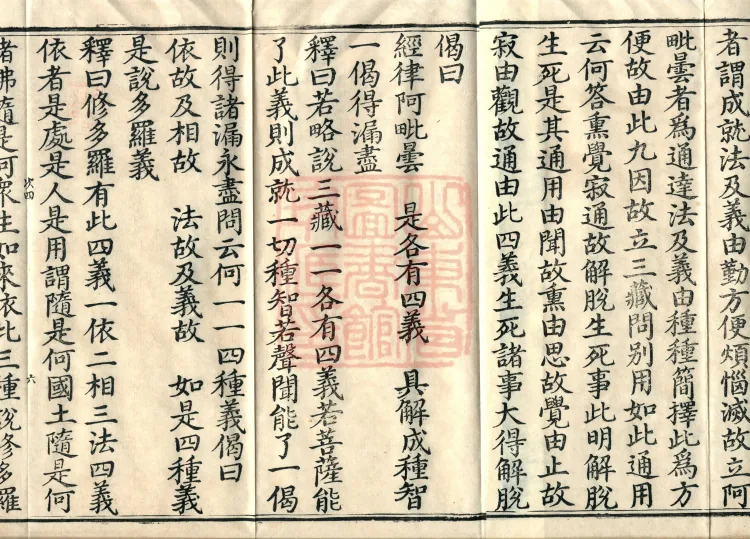 者謂成就法及義由勤方便煩惱滅故立阿
毗曇者爲通達法及義由種種簡擇此爲方
便故由此九因故立三藏問别用如此通用
云何答熏覺寂通故解脫生死事此明解脫
生死是其通用由聞故熏由思故覺由止故
寂由觀故通由此四義生死諸事大得解脫
偈曰
經律阿毗曇　是各有四義　具解成種智
一偈得漏盡
釋曰若略說三藏一一各有四義若菩薩能
了此義則成就一切種智若聲聞能了一偈
則得諸漏永盡問云何一一四種義偈曰
依故及相故　法故及義故　如是四種義
是說多羅義
釋曰修多羅有此四義一依二相三法四義
依者是處是人是用謂隨是何國土隨是何
者佛隨是何衆生如來依此三種說修多羅
次四
六